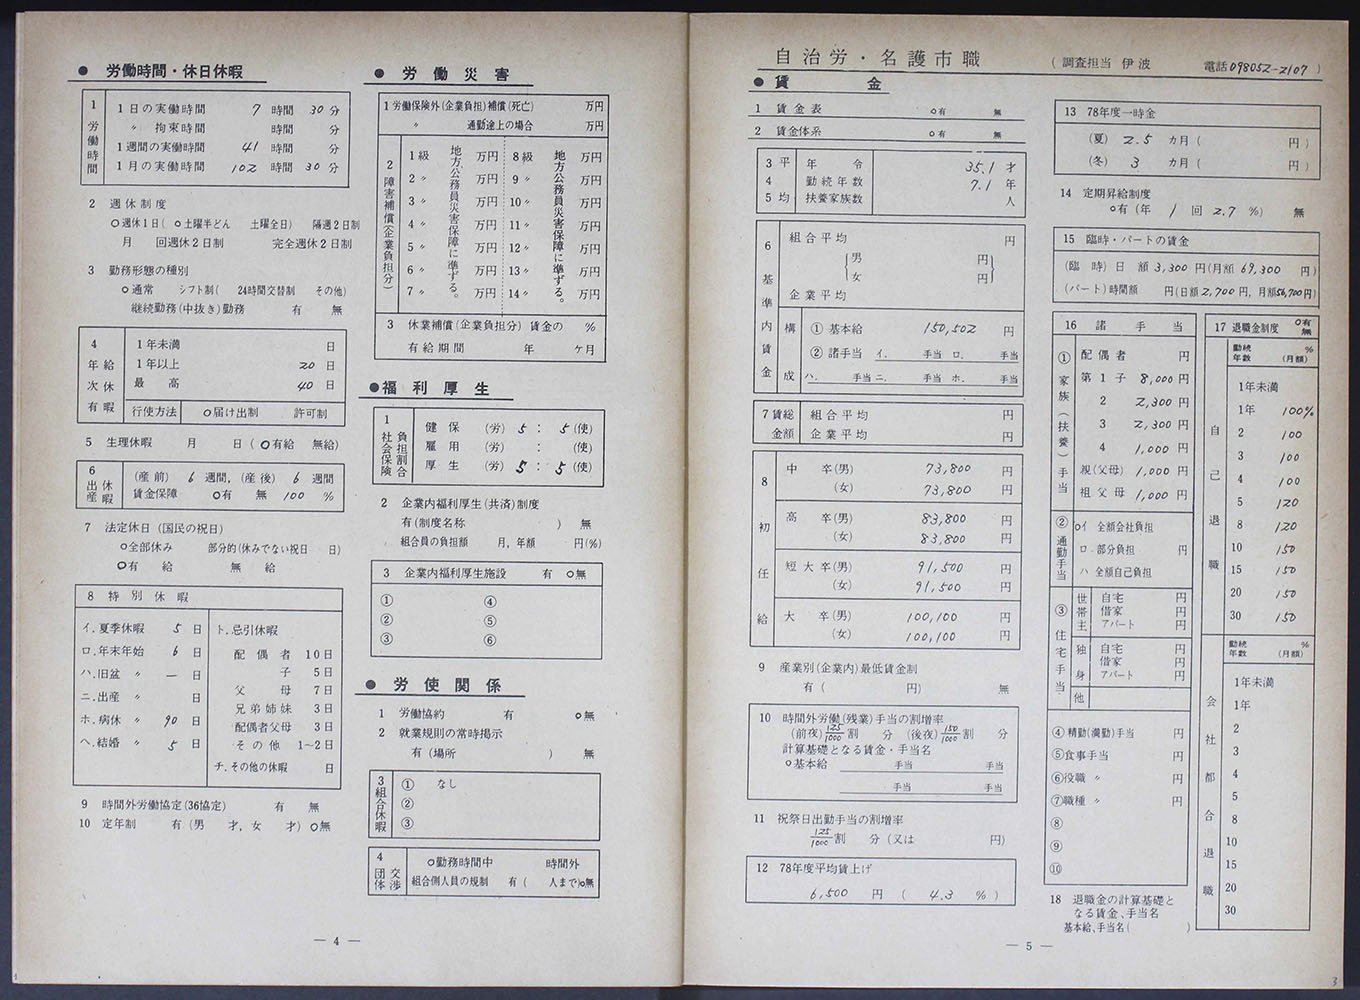 ● 労働時間・休日休暇
1 労働時間
1日の実働時間 7 時間 30 分
〃 拘束時間 時間 分
1週間の実働時間 41 時間 分
1月の実働時間 102 時間 30 分
2 週休制度
○週休1日( ○土曜半どん 土曜全日) 隔週2日制
月 回週休2日制 完全週休2日制
3 勤務形態の種別
○通常 シフト制( 24時間交替制 その他)
継続勤務(中抜き)勤務 有 無
4 年次有給休暇
1年未満 日
1年以上 20 日
最高 40 日
行使方法 ○届け出制 許可制
5 生理休暇 月 日 ( ○有給 無給)
6 出産休暇
(産前) 6 週間, (産後) 6 週間
賃金保障 ○有 無 100 %
7 法定休日 (国民の祝日)
○全部休み 部分的(休みでない祝日 日)
○有給 無給
8 特別休暇
イ.夏季休暇 5 日
ロ.年末年始 6 日
ハ.旧盆 〃 — 日
ニ.出産 〃 日
ホ.病休 〃 90 日
ヘ.結婚 〃 5 日
ト.忌引休暇
配偶者 10日
子 5日
父母 7日
兄弟姉妹 3日
配偶者父母 3日
その他 1~2日
チ.その他の休暇 日
9 時間外労働協定(36協定) 有 無
10 定年制 有(男 才, 女 才) ○無
● 労働災害
1 労働保険外(企業負担)補償(死亡) 万円
〃 通勤途上の場合 万円
2 障害補償(企業負担分)
1級 万円 8級 万円
2〃 万円 9〃 万円
3〃 万円 10〃 万円
4〃 万円 11〃 万円
5〃 万円 12〃 万円
6〃 万円 13〃 万円
7〃 万円 14〃 万円
地方公務員災害保障に準ずる。
地方公務員災害保障に準ずる。
3 休業補償(企業負担分) 賃金の %
有給期間 年 ケ月
●福利厚生
1 社会保険負担割合
健保 (労) 5 : 5 (使)
雇用 (労) : (使)
厚生 (労) 5 : 5 (使)
2 企業内福利厚生(共済)制度
有(制度名称 ) 無
組合員の負担額 月, 年額 円(%)
3 企業内福利厚生施設 有 ○無
① ④
② ⑤
③ ⑥
● 労使関係
1 労働協約 有 ○無
2 就業規則の常時掲示
有 (場所 ) 無
3 組合休暇
① なし
②
③
4 団体交渉
○勤務時間中 時間外
組合側人員の規制 有( 人まで)○無
— 4 —
自治労・名護市職 ( 調査担当 伊波 電話 098052-2107 )
● 賃金
1 賃金表 ○有 無
2 賃金体系 ○有 無
3 平均 年令 35.1 才
4 勤続年数 7.1 年
5 扶養家族数 人
6 基準内賃金
組合平均 円
男 円
女 円
企業平均
構成
① 基本給 150,502 円
② 諸手当 イ. 手当 ロ. 手当
ハ. 手当 ニ. 手当 ホ. 手当
7 賃金総額 組合平均 円
企業平均 円
8 初任給
中卒(男) 73,800 円
(女) 73,800 円
高卒(男) 83,800 円
(女) 83,800 円
短大卒(男) 91,500 円
(女) 91,500 円
大卒(男) 100,100 円
(女) 100,100 円
9 産業別(企業内)最低賃金制
有 ( 円) 無
10 時間外労働(残業)手当の割増率
(前夜) 125/1000 割 分 (後夜) 150/1000 割 分
計算基礎となる賃金・手当名
○基本給 手当 手当
手当 手当
11 祝祭日出勤手当の割増率
125/1000 割 分 (又は 円)
12 78年度平均賃上げ
6,500 円 ( 4.3 % )
13 78年度一時金
(夏) 2.5 カ月 ( 円 )
(冬) 3 カ月 ( 円 )
14 定期昇給制度
○有 (年 1 回 2.7 %) 無
15 臨時・パートの賃金
(臨時) 日額 3,300 円(月額 69,300 円)
(パート) 時間額 円(日額 2,700円, 月額56,700円)
16 諸手当
① 家族(扶養)手当
配偶者 円
第1子 8,000 円
2 2,300 円
3 2,300 円
4 1,000 円
親(父母) 1,000 円
祖父母 1,000 円
② 通勤手当
○イ 全額会社負担
ロ.部分負担 円
ハ 全額自己負担
③ 住宅手当
世帯主 自宅 円
借家 円
アパート 円
独身 自宅 円
借家 円
アパート 円
他
④ 精勤(満勤)手当 円
⑤食事手当 円
⑥役職 〃 円
⑦職種 〃 円
⑧
⑨
⑩
17 退職金制度 ○有 無
自己退職
勤続年数 % (月額)
1年未満
1年 100%
2 100
3 100
4 100
5 120
8 120
10 150
15 150
20 150
30 150
会社都合退職
勤続年数 % (月額)
1年未満
1年
2
3
4
5
8
10
15
20
30
18 退職金の計算基礎と
なる賃金、手当名
基本給、手当名( )
— 5 —
3